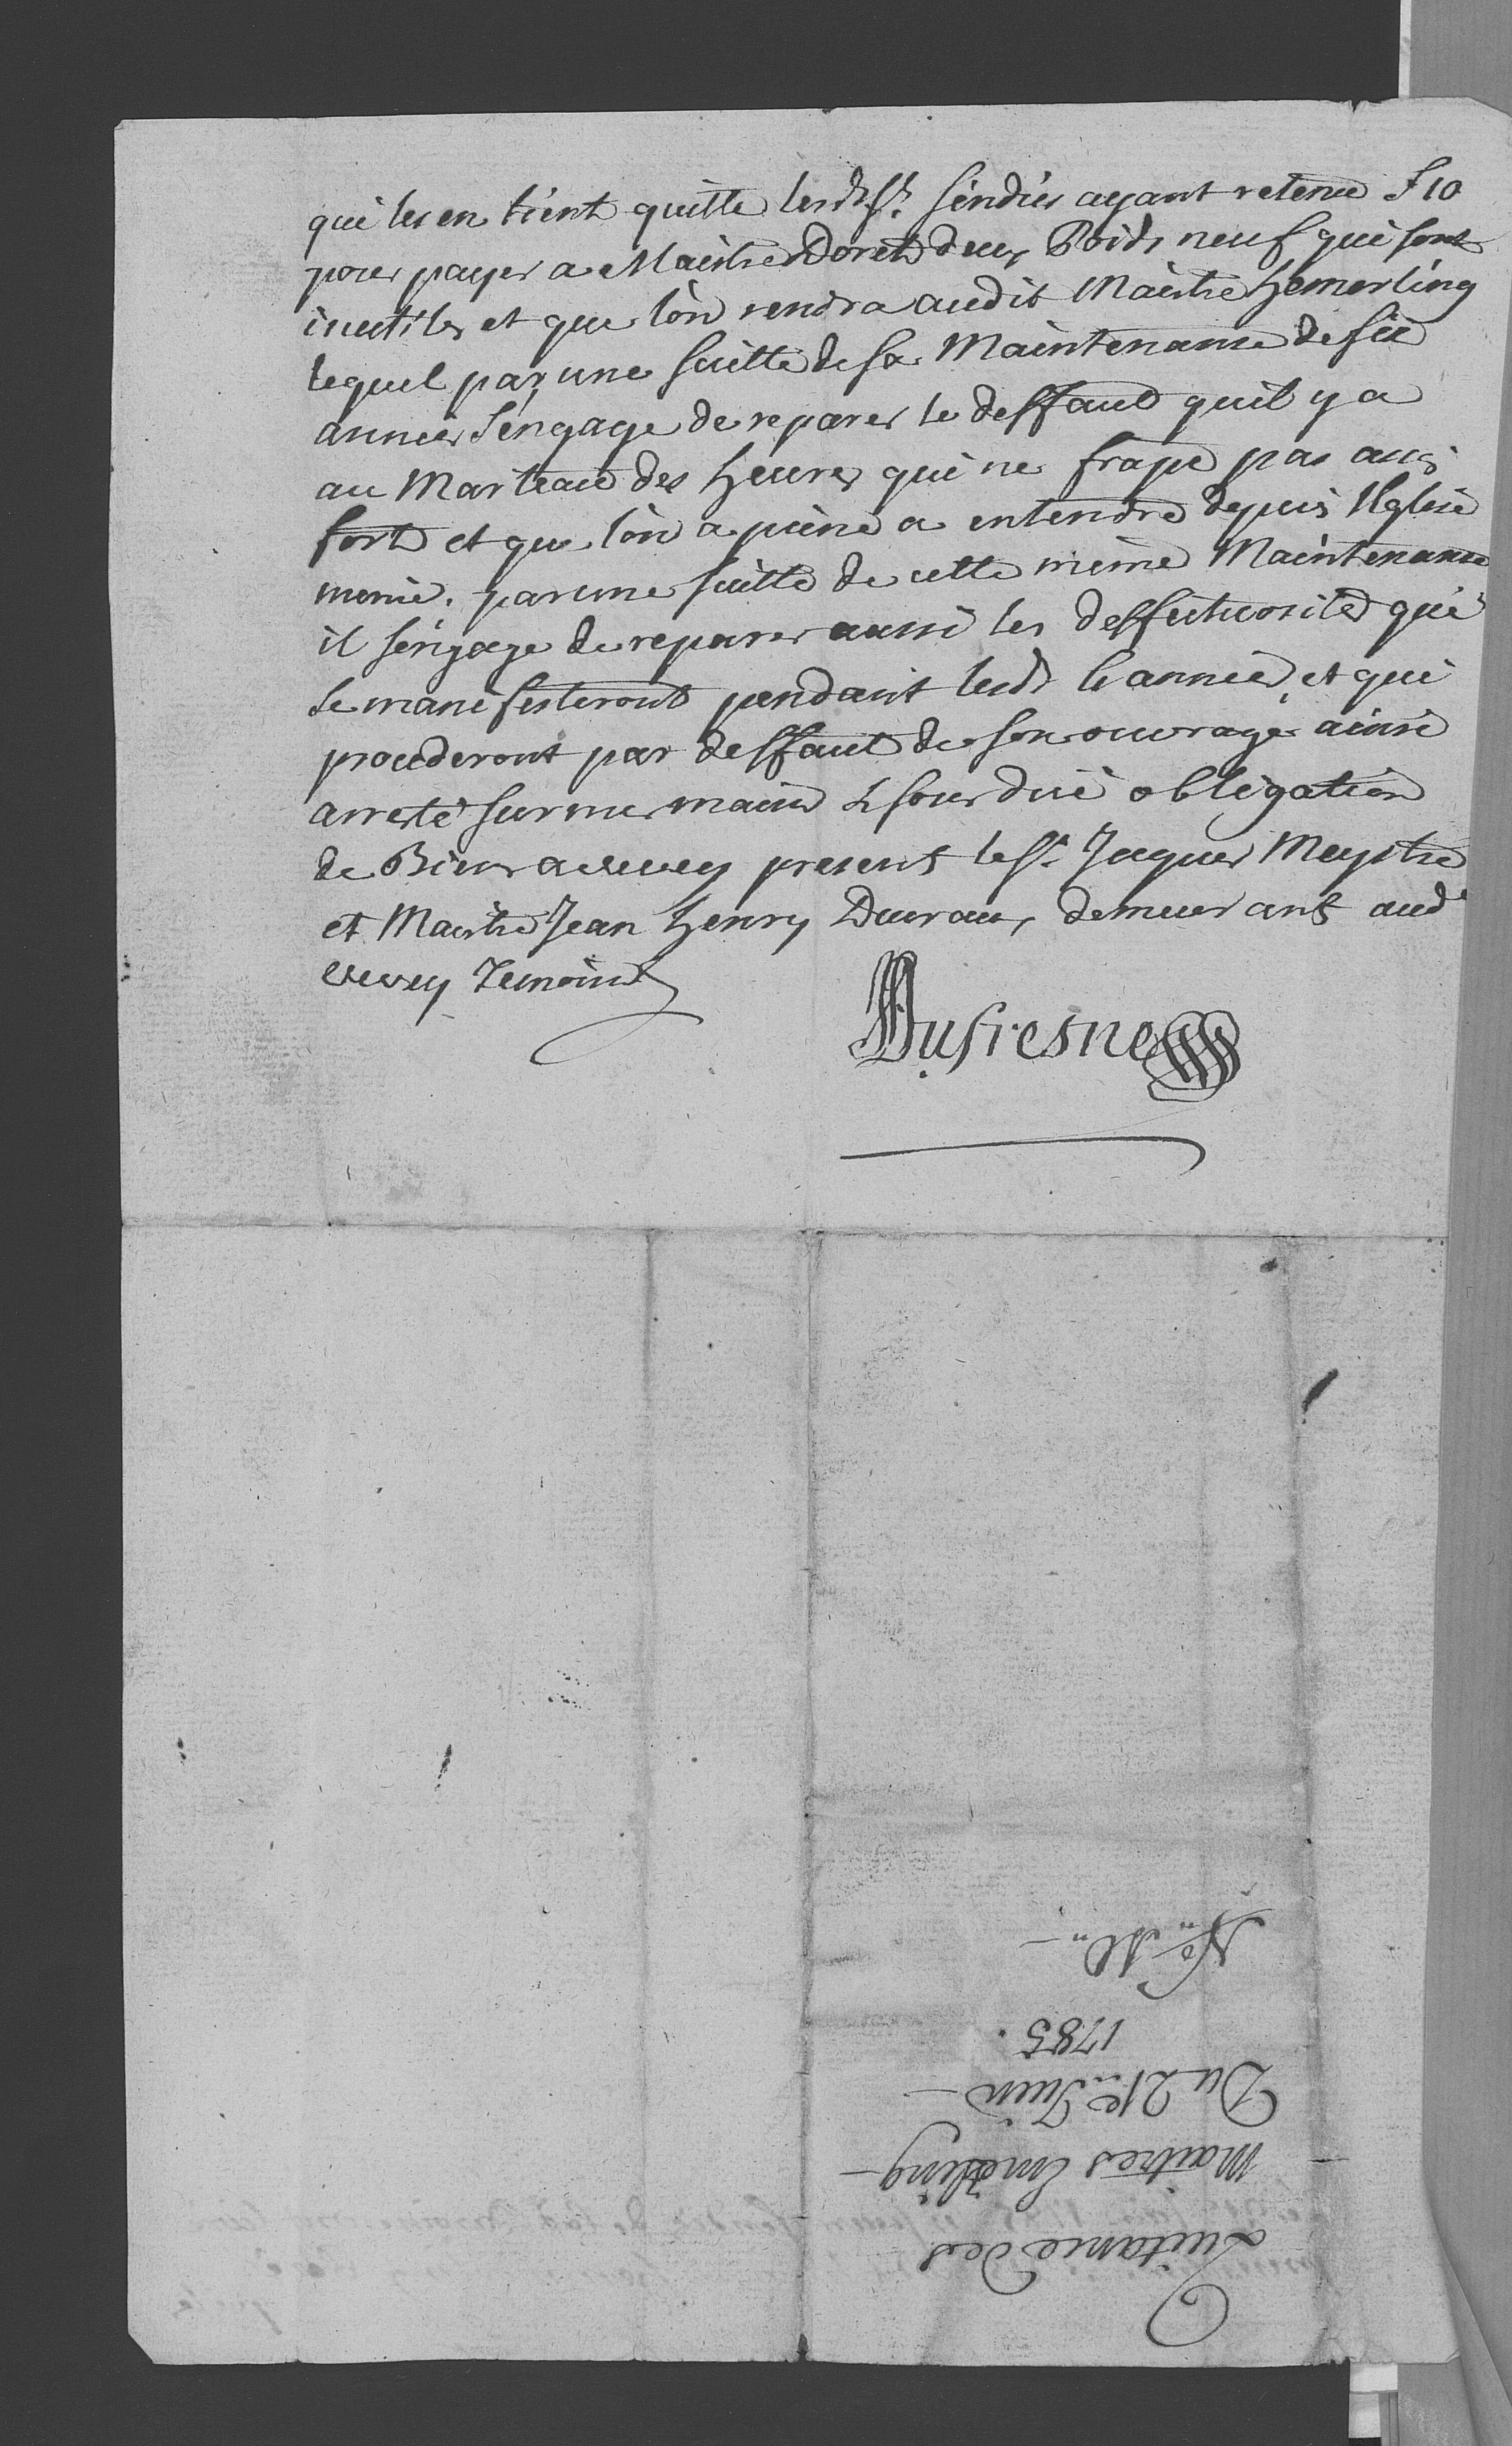 qui les en tient quitte lesd.s S.rs Sindics ayant retenu f 10
pour payer a Maistre Doret deux Poids neuf qui sont
inutiles et que l'on rendra audit Maistre Hemerling
lequel par une suitte de sa Maintenance de six
années s'engage de reparer le deffaut quil y a
au Marteau des heures qui ne frape pas assés
fort et que l'on a peine a entendre depuis l'Eglise
meme. par une suitte de cette meme Maintenance
il s'engage de reparer aussi les deffectuosités qui
se manifesteront pendant lesd. 6 années et qui
procederont par deffaut de son ouvrage ainsi
arresté sur mes mains & sous due obligation
de Biens a Vevey present le S.r Jaques Meystre
et Maistre Jean Henry Duraux, demeurant aud.
Vevey Temoins
Dufresne
Quitance des
Maitres Emerling
Du 21.e Juin
1785.
N.o